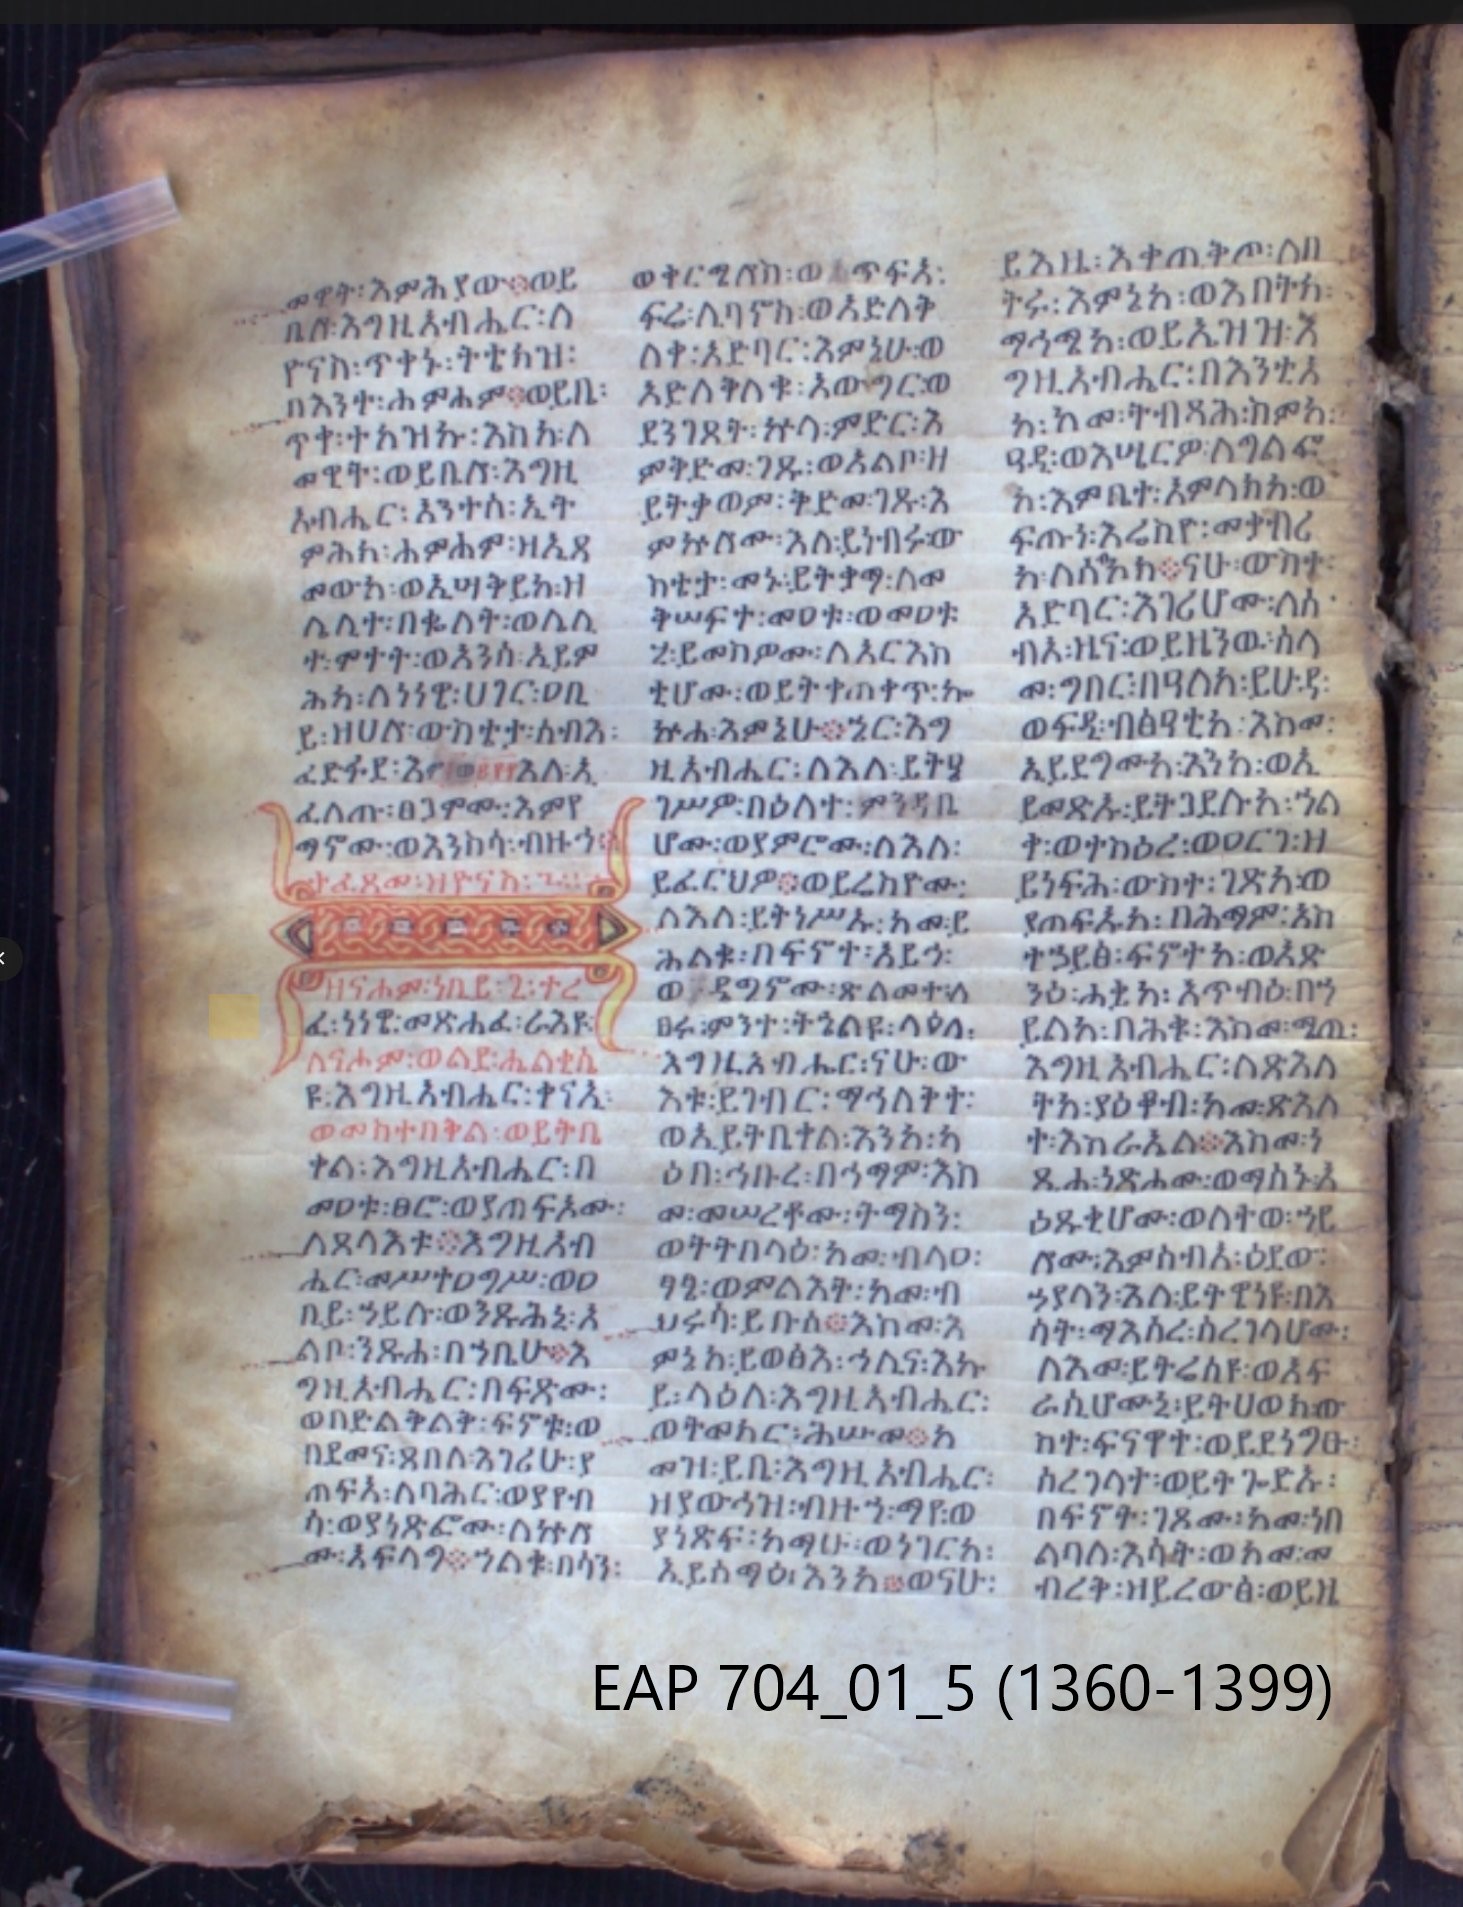 መዊት፡እምሕያው፨ወይ
ቤሎ፡እግዚአብሔር፡ለ
ዮናስ፡ጥቀኑ፡ትቴክዝ፡
በእንተ፡ሐምሐም፨ወይቤ፡
ጥቀ፡ተክዝኩ፡እስከ፡ለ
መዊት፡ወይቤሎ፡እግዚ
አብሔር፡አንተሰ፡ኢት
ምሕክ፡ሐምሐም፡ዘኢጻ
መውከ፡ወኢሣቅይከ፡ዘ
ሌሊተ፡በቈለት፡ወሌሊ
ተ፡ሞተት፡ወአንሰ፡ኢይም
ሕክ፡ለነነዌ፡ሀገር፡ዐቢ
ይ፡ዘሀሎ፡ውስቴታ፡ሰብእ፡
ፈድፋደ፡እም እለ፡ኢ
ፈለጡ፡ፀጋሞሙ፡እምየ
ማኖሙ፡ወእንስሳ፡ብዙኅ፨
ተፈጸመ፡ዘዮናስ፡
ዘናሖም፡ነቢይ፡ ተረ
ፈ፡ነነዌ፡መጽሐፈ፡ራእዩ፡
ለናሖም፡ወልደ፡ሔልቂሲ
ዩ፡እግዚአብሔር፡ቀናኢ፡
ወመስተበቅል፡ወይትቤ
ቀል፡እግዚአብሔር፡በ
መዐቱ፡ፀሮ፡ወያጠፍኦሙ፡
ለጸላእቱ፨እግዚአብ
ሔር፡መሥተዐግሥ፡ወዐ
ቢይ፡ኃይሉ፡ወንጹሕኒ፡አ
ልቦ፡ንጹሐ፡በኀቤሁ፨እ
ግዚአብሔር፡በፍጽሙ፡
ወበድልቅልቅ፡ፍኖቱ፡ወ
በደመና፡ጸበለ፡እገሪሁ፡ያ
ጠፍኣ፡ለባሕር፡ወያየብ
ሳ፡ወያነጽፎሙ፡ለኵሎ
ሙ፡አፍላግ፨ኀልቁ፡በሳን፡
ወቀርሜሎስ፡ወ ጥፍአ፡
ፍሬ፡ሊባኖስ፡ወአድለቅ
ለቀ፡አድባር፡እምኔሁ፡ወ
አድለቅለቁ፡አውግር፡ወ
ደንገጸት፡ኵላ፡ምድር፡እ
ምቅድመ፡ገጹ፡ወአልቦ፡ዘ
ይትቃወም፡ቅድመ፡ገጹ፡እ
ምኵሎሙ፡እለ፡ይነብሩ፡ው
ስቴታ፡መኑ፡ይትቃማ፡ለመ
ቅሠፍተ፡መዐቱ፡ወመዐቱ
ኒ፡ይመስዎሙ፡ለአርእስ
ቲሆሙ፡ወይትቀጠቀጥ፡ኰ
ኵሐ፡እምኔሁ፨ኄር፡እግ
ዚአብሔር፡ለእለ፡ይትዔ
ገሥዎ፡በዕለተ፡ምንዳቤ
ሆሙ፡ወያምሮሙ፡ለእለ፡
ይፈርህዎ፨ወይሬስዮሙ፡
ለእለ፡ይትነሥኡ፡ከመ፡ይ
ሕልቁ፡በፍኖተ፡አይኅ፡
ወ ዴግኖሙ፡ጽልመተ፡ለ
ፀሩ፡ምንተ፡ትኄልዩ፡ላዕለ፡
እግዚአብሔር፡ናሁ፡ው
እቱ፡ይገብር፡ማኅለቅተ፡
ወኢይትቤቀል፡እንከ፡ካ
ዕበ፡ኅቡረ፡በኅማም፡እስ
መ፡መሠረቶሙ፡ትማስን፡
ወትትበላዕ፡ከመ፡ብላዐ፡
ፃፄ፡ወምልእት፡ከመ፡ብ
ህሩሳ፡ይቡስ፨እስመ፡እ
ምኔከ፡ይወፅእ፡ኅሊና፡እኩ
ይ፡ላዕለ፡እግዚአብሔር፡
ወትመክር፡ሕሡመ፨ከ
መዝ፡ይቤ፡እግዚአብሔር፡
ዘያውኅዝ፡ብዙኅ፡ማየ፡ወ
ያነጽፍ፡ከማሁ፡ወነገርከ፡
ኢይሰማዕ፡እንከ፨ወናሁ፡
ይእዜ፡እቀጠቅጦ፡ለበ
ትሩ፡እምኔከ፡ወእበትክ፡
ማኅሜከ፡ወይኤዝዝ፡እ
ግዚአብሔር፡በእንቲአ
ከ፡ከመ፡ትብጻሕ፡ስምከ፡
ዓዲ፡ወእሤርዎ፡ለግልፎ
ከ፡እምቤተ፡አምላክከ፡ወ
ፍጡነ፡እሬስዮ፡መቃብሪ
ከ፡ለሰኵከ፨ናሁ፡ውስተ፡
አድባር፡እገሪሆሙ፡ለሰ
ብአ፡ዜና፡ወይዜንዉ፡ሰላ
መ፡ግበር፡በዓለከ፡ይሁዳ፡
ወፍዲ፡ብፅዓቲከ፡እስመ፡
ኢይደግሙከ፡እንከ፡ወኢ
ይመጽኡ፡ይትጋደሉከ፡ኀል
ቀ፡ወተስዕረ፡ወዐርገ፡ዘ
ይነፍሕ፡ውስተ፡ገጽከ፡ወ
ያጠፍኡከ፡በሕማም፡እስ
ተኃይፅ፡ፍኖተከ፡ወአጽ
ንዕ፡ሐቌከ፡አጥብዕ፡በኀ
ይልከ፡በሕቁ፡እስመ፡ሜጠ፡
እግዚአብሔር፡ለጽእለ
ትከ፡ያዕቆብ፡ከመ፡ጽእለ
ተ፡እስራኤል፨እስመ፡ነ
ጺሐ፡ነጽሐሙ፡ወማሰኑ፡አ
ዕጹቂሆሙ፡ወለትወ፡ኀይ
ሎሙ፡እምሰብአ፡ዕደው፡
ኃያላን፡እለ፡ይትዌነዩ፡በእ
ሳት፡ማእሰረ፡ሰረገላሆሙ፡
ለእመ፡ይትሬሰዩ፡ወአፍ
ራሲሆሙኒ፡ይትሀወኩ፡ው
ስተ፡ፍናዋተ፡ወይደነግፁ፡
ሰረገላተ፡ወይትጐድኡ፡
በፍኖት፡ገጾሙ፡ከመ፡ነበ
ልባለ፡እሳት፡ወከመ፡መ
ብረቅ፡ዘይረውፅ፡ወይዜ
EAP 704_01_5 (1360-1399)